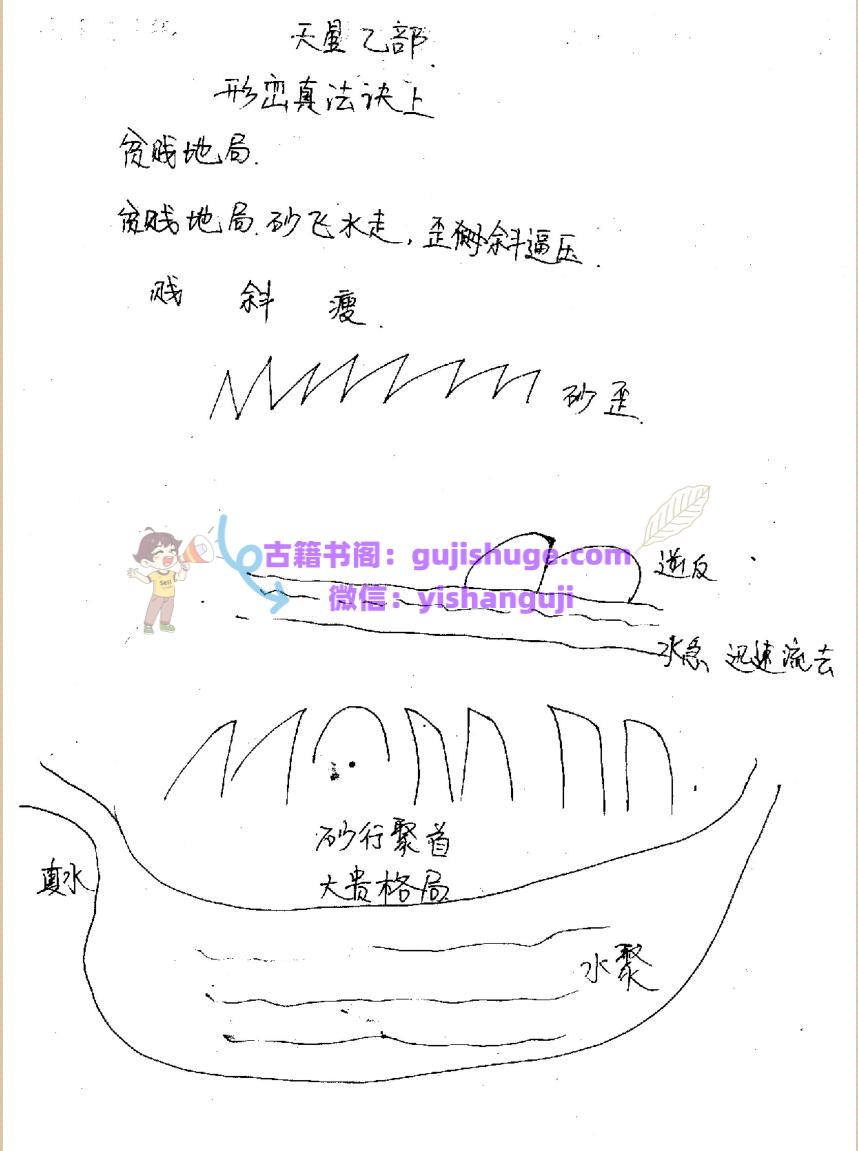 天星乙部.
形峦真法诀上
贫贱地局.
贫贱地局.砂飞水走,歪侧斜逼压.
贱 斜 瘦.
砂歪.
古籍书阁：gujishuge.com
微信：yishanguji
Sell
逆反
水急 迅速流去
砂行聚首
大贵格局
真水
水聚